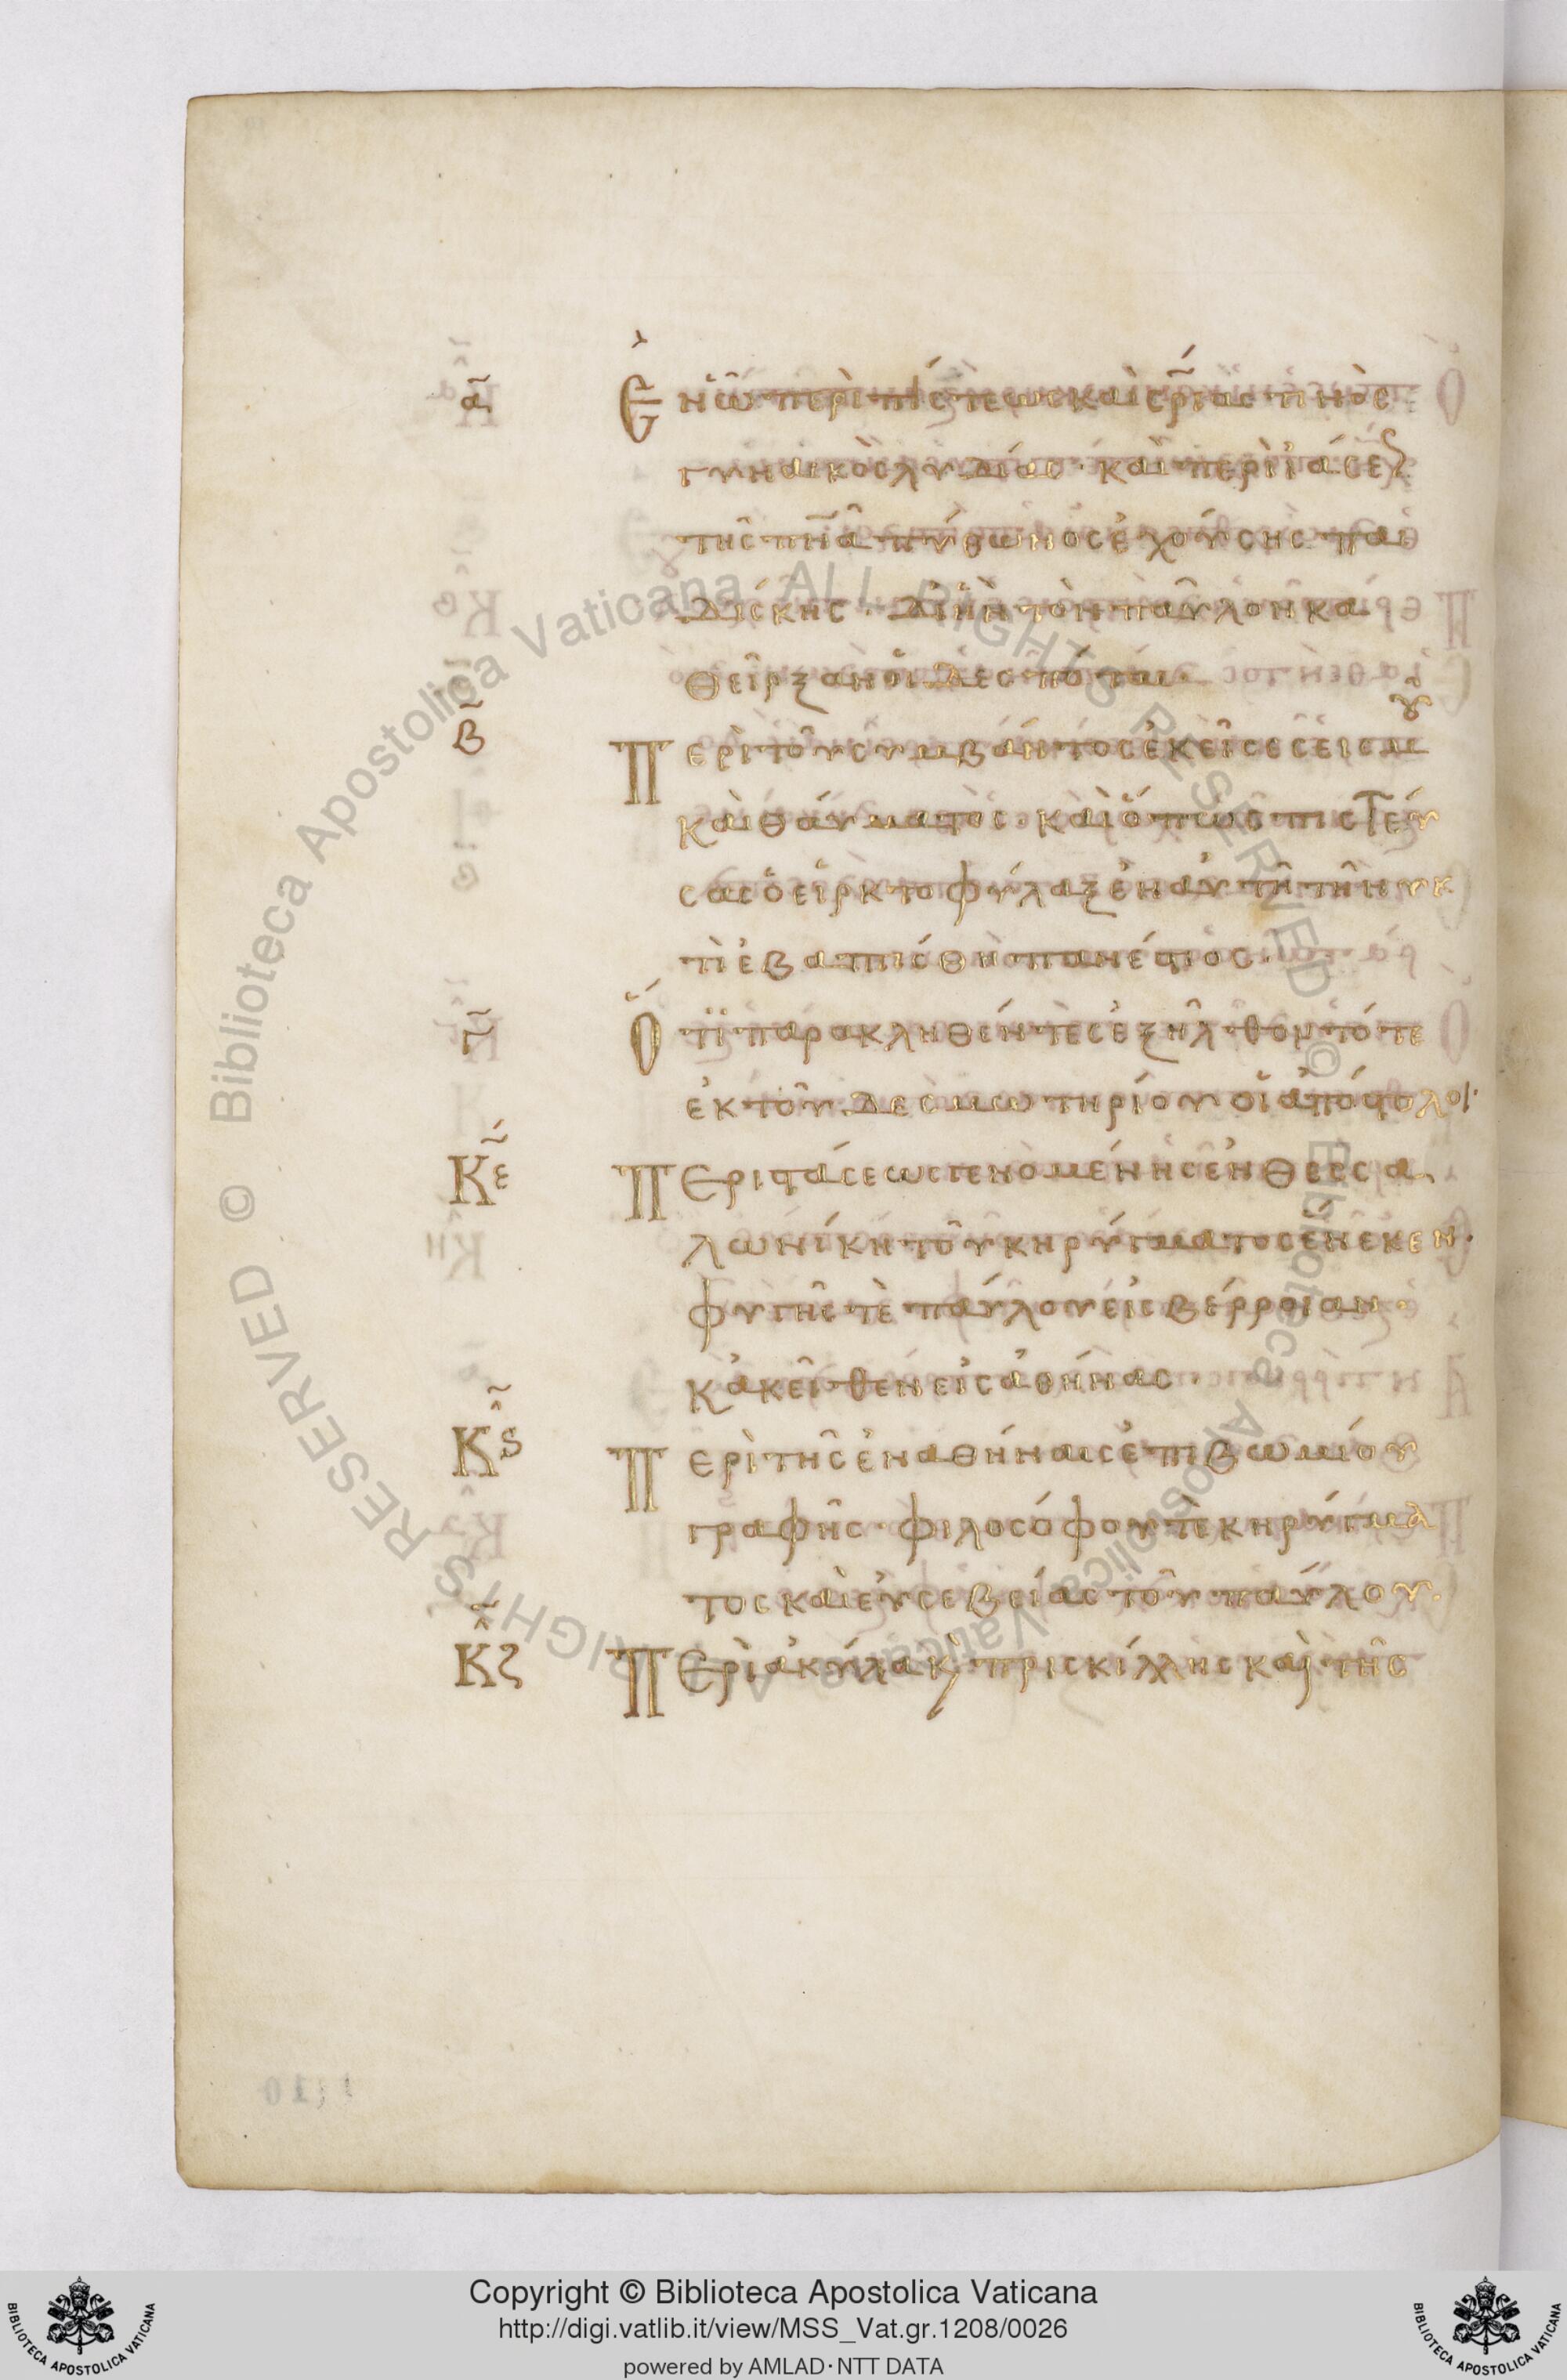 α Ἐν ὧ περὶ πίστεως καὶ σρίας τινὸς
γυναικὸς λυδίας · καὶ περὶ ἰάσεως
τῆς πνα πύθωνος ἐχούσης παι
δίσκης · δι ἣν τὸν παῦλον κα
θεῖρξαν οἱ δεσπόται
β Περὶ τοῦ συμβάντος ἐκεῖσε σεισμοῦ
καὶ θαύματος · καὶ ὅπως πιστεύ
σας ὁ εἱρκτοφύλαξ ἐν αὐτῆ τῆ νυκ
τὶ ἐβαπτίσθη πανέστιος ·
γ Ὅτι παρακληθέντες ἐξῆλθον τότε
ἐκ τοῦ δεσμωτηρίου οἱ ἀπόστολοι ·
Κε Περὶ στάσεως γενομένης ἐν θεσσα
λωνίκη τοῦ κηρύγματος ἕνεκεν ·
φυγῆς τὲ παύλου εἰς βέρροιαν ·
κἀκεῖθεν εἰς ἀθήνας ·
Κς Περὶ τῆς ἐν ἀθήναις ἐπιβωμίου
γραφῆς · φιλοσόφου τὲ κηρύγμα
τος καὶ εὐσεβείας τοῦ παύλου ·
Κζ Περὶ ἀκύλα κ πρισκίλλης καὶ τῆς
Copyright © Biblioteca Apostolica Vaticana
http://digi.vatlib.it/view/MSS_Vat.gr.1208/0026
powered by AMLAD·NTT DATA
BIBLIOTECA APOSTOLICA VATICANA
BIBLIOTECA APOSTOLICA VATICANA
© Biblioteca Apostolica Vaticana ALL RIGHTS RESERVED © Biblioteca Apostolica Vaticana ALL RIGHTS RESERVED